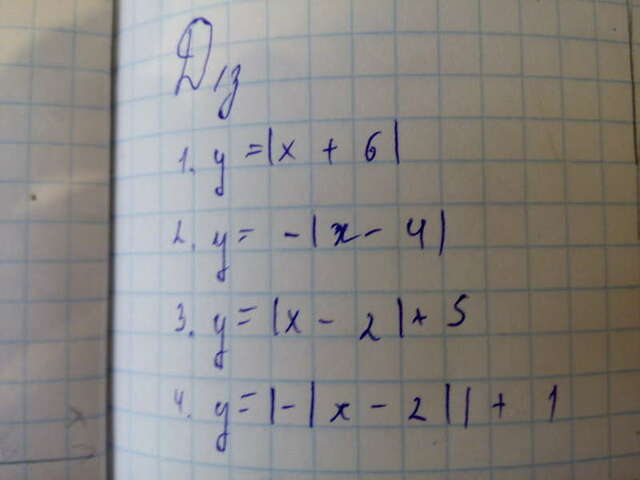 D/з
1. y = |x + 6|
2. y = - |x - 4|
3. y = |x - 2| + 5
4. y = |-|x - 2|| + 1